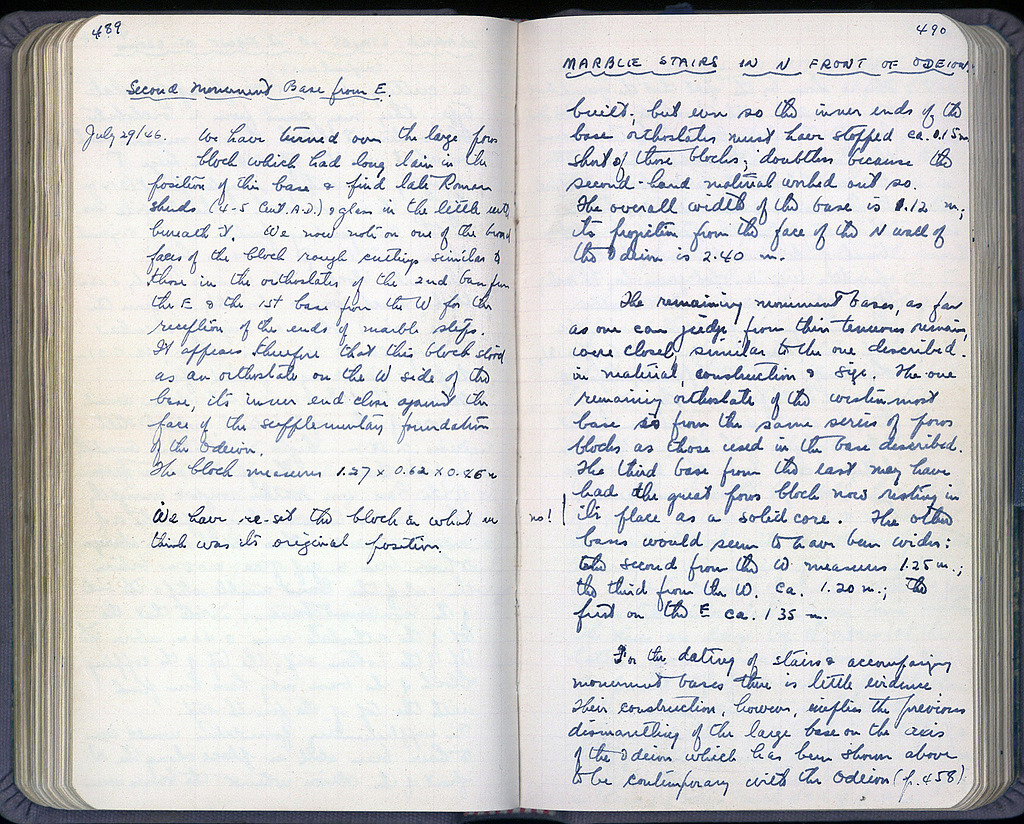 489
Second Monument Base from E.
July 29/46. We have turned over the large poros
block which had long lain in the
position of this base & find late Roman
sherds (4-5 Cent. A.D.) & glass in the little earth
beneath it. We now notice on one of the broad
faces of the block rough cuttings similar to
those in the orthostates of the 2nd base from
the E & the 1st base from the W for the
reception of the ends of marble steps.
It appears therefore that this block stood
as an orthostate on the W side of the
base, its inner end close against the
face of the supplementary foundation
of the Odeion.
The block measures 1.27 x 0.62 x m
We have re-set the block in what we
think was its original position.
490
MARBLE STAIRS IN N FRONT OF ODEION.
built; but even so the inner ends of the
base orthostates must have stopped ca. 0.15 m
short of those blocks; doubtless because the
second-hand material worked out so.
The overall width of the base is 1.12 m;
its projection from the face of the N wall of
the Odeion is 2.40 m.
The remaining monument bases, as far
as one can judge from their tenuous remains,
were closely similar to the one described.
in material, construction & size. The one
remaining orthostate of the westernmost
base is from the same series of poros
blocks as those used in the base described.
The third base from the east may have
had the great poros block now resting in
no! its place as a solid core. The other
bases would seem to have been wider:
the second from the W. measures 1.25 m.;
the third from the W. ca. 1.20 m.; the
first on the E ca. 1 35 m.
For the dating of stairs & accompanying
monument bases there is little evidence.
Their construction, however, implies the previous
dismantling of the large base on the axis
of the Odeion which has been shown above
to be contemporary with the Odeion (p. 458)